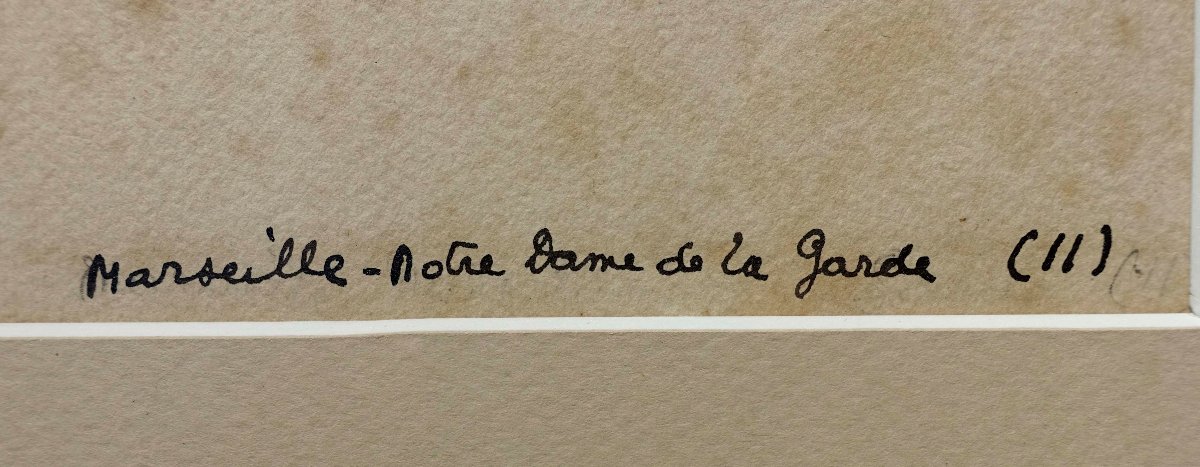 Marseille - Notre Dame de la Garde (II)